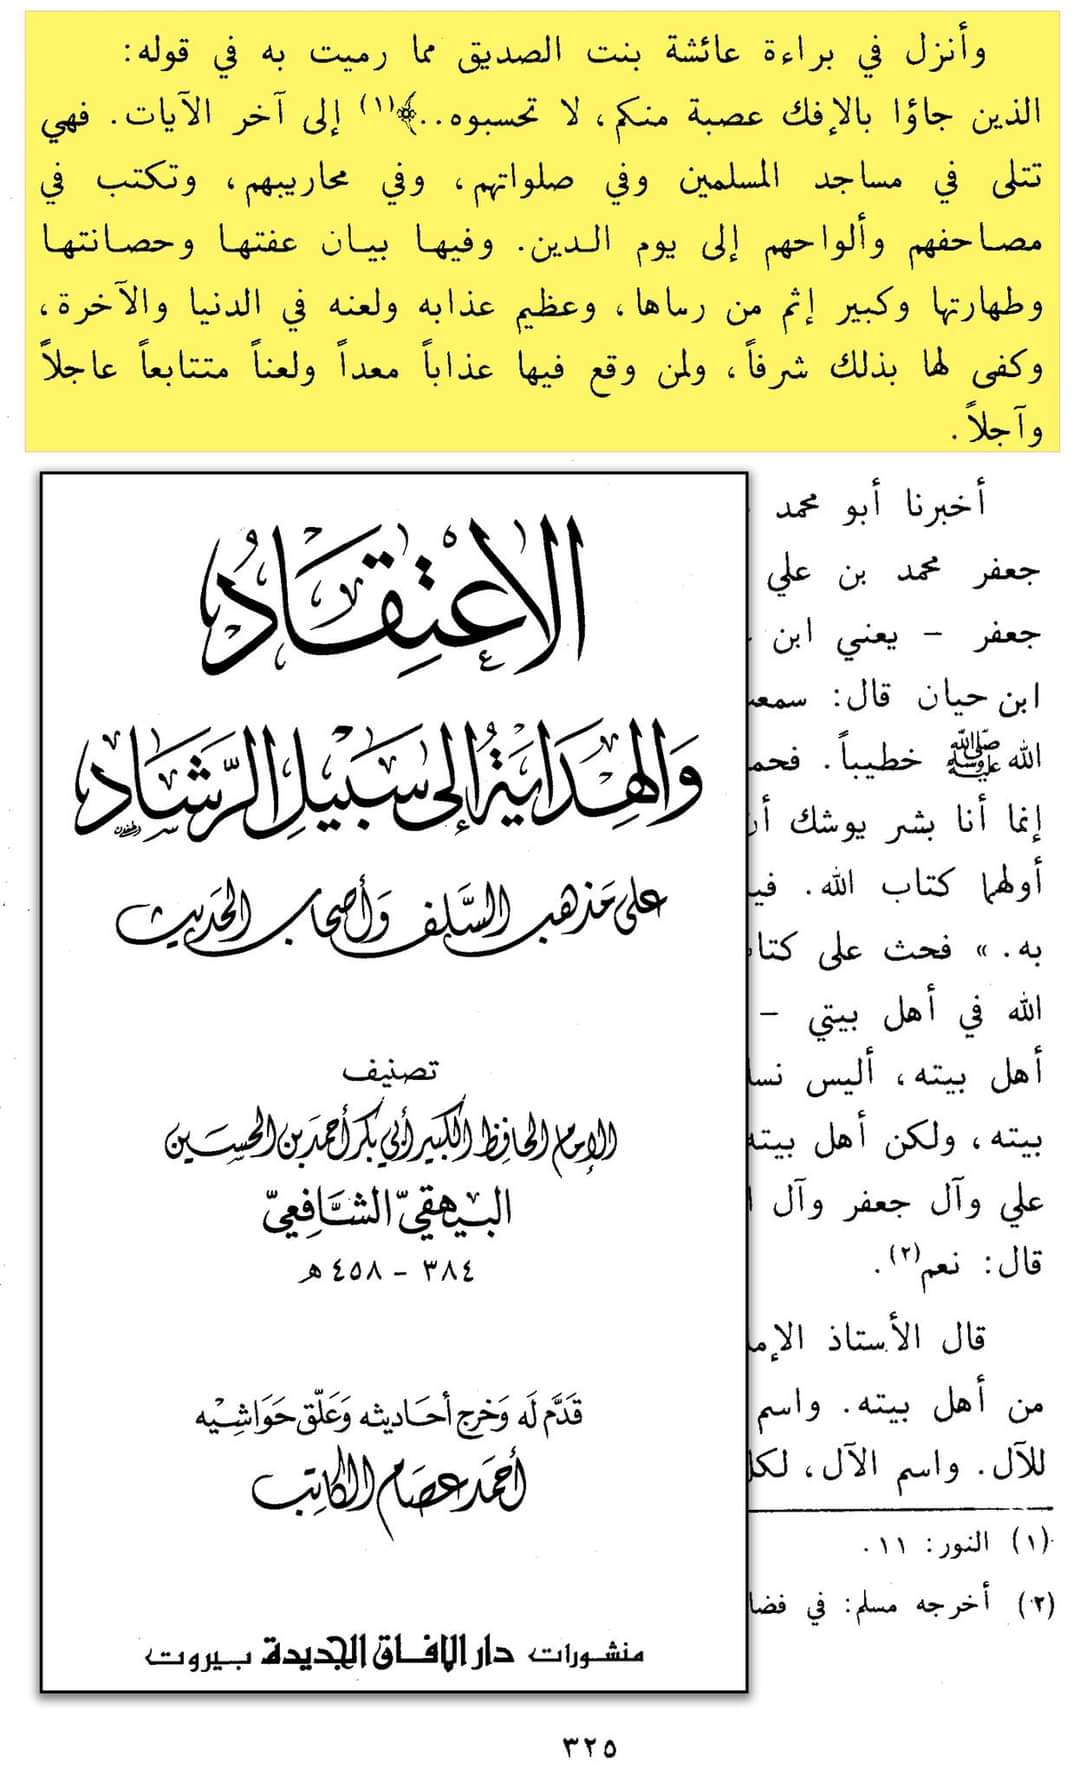 وأنزل في براءة عائشة بنت الصديق مما رميت به في قوله:
الذين جاؤا بالإفك عصبة منكم، لا تحسبوه..﴾(١) إلى آخر الآيات. فهي
تتلى في مساجد المسلمين وفي صلواتهم، وفي محاريبهم، وتكتب في
مصاحفهم وألواحهم إلى يوم الدين. وفيها بيان عفتها وحصانتها
وطهارتها وكبير إثم من رماها، وعظيم عذابه ولعنه في الدنيا والآخرة،
وكفى لها بذلك شرفاً، ولمن وقع فيها عذاباً معداً ولعناً متتابعاً عاجلاً
وآجلاً.
أخبرنا أبو محمد
جعفر محمد بن علي
جعفر - يعني ابن
ابن حيان قال: سمعت
الله ﷺ خطيباً. فحم
إنما أنا بشر يوشك أن
أولهما كتاب الله. في
به.» فحث على كتا
الله في أهل بيتي -
أهل بيته، أليس نسا
بيته، ولكن أهل بيته
علي وآل جعفر وآل
قال: نعم(٢).
قال الأستاذ الإم
من أهل بيته. واسم
للآل. واسم الآل، لكل
(١) النور: ١١.
(٢) أخرجه مسلم: في فضا
الاعتِقَادُ
وَالهِدَايَةُ إلى سَبيلِ الرَّشَادِ
على مَذهب السَّلف وَأصحاب الحَديث
تصنيف
الإمام الحافظ الكبير أبي بكر أحمد بن الحسين
البيهقيّ الشَّافِعيّ
٣٨٤ - ٤٥٨ هـ
قَدَّم لَه وَخرج أحَاديثه وَعَلّق حَوَاشِيْه
أحمَد عصَام الكاتِب
منشورات دار الآفاق الجديدة بيروت
٣٢٥